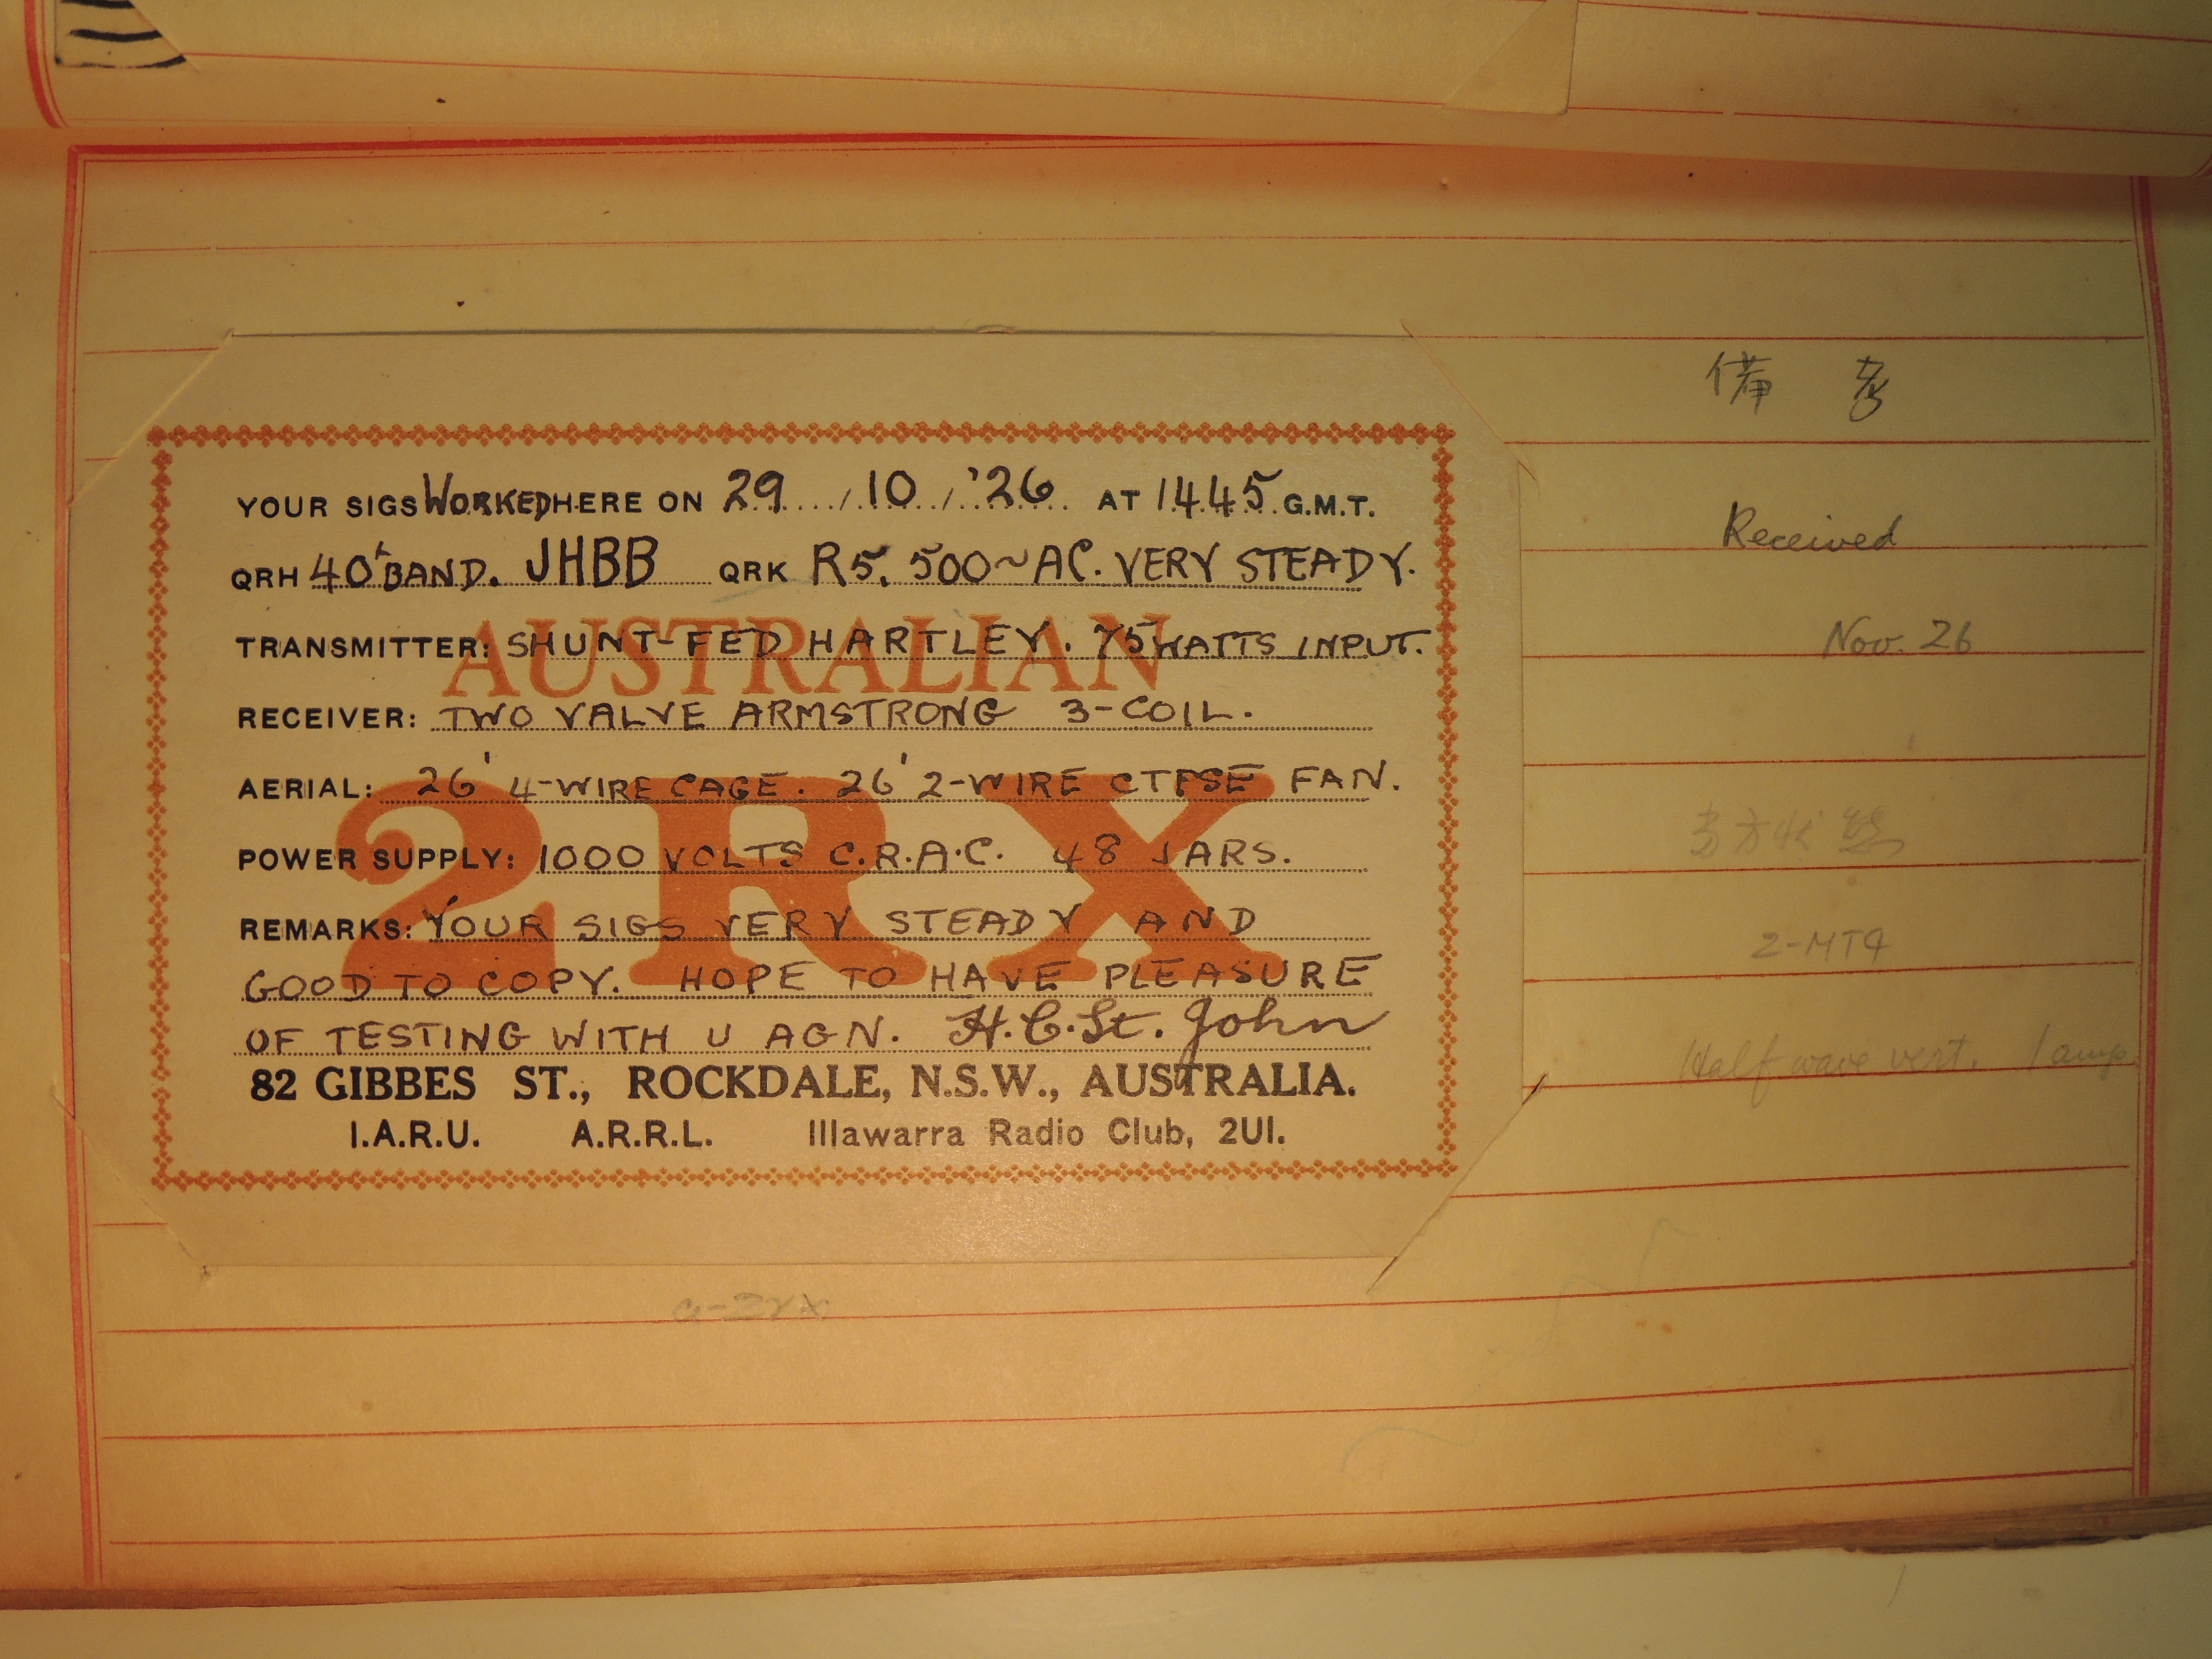 YOUR SIGS WORKED HERE ON 29 / 10 / '26 AT 1445 G.M.T.
QRH 40 BAND. JHBB QRK R5. 500~AC. VERY STEADY.
AUSTRALIAN
TRANSMITTER: SHUNT-FED HARTLEY. 75 WATTS INPUT.
RECEIVER: TWO VALVE ARMSTRONG 3-COIL.
AERIAL: 26' 4-WIRE CAGE. 26' 2-WIRE CTPSE FAN.
2RX
POWER SUPPLY: 1000 VOLTS C.R.A.C. 48 JARS.
REMARKS: YOUR SIGS VERY STEADY AND
GOOD TO COPY. HOPE TO HAVE PLEASURE
OF TESTING WITH U AGN. H.C.St. John
82 GIBBES ST., ROCKDALE, N.S.W., AUSTRALIA.
I.A.R.U. A.R.R.L. Illawarra Radio Club, 2UI.
a-2rx
備 考
Received
Nov. 26
2-MT4
Half wave vert. 1 amp